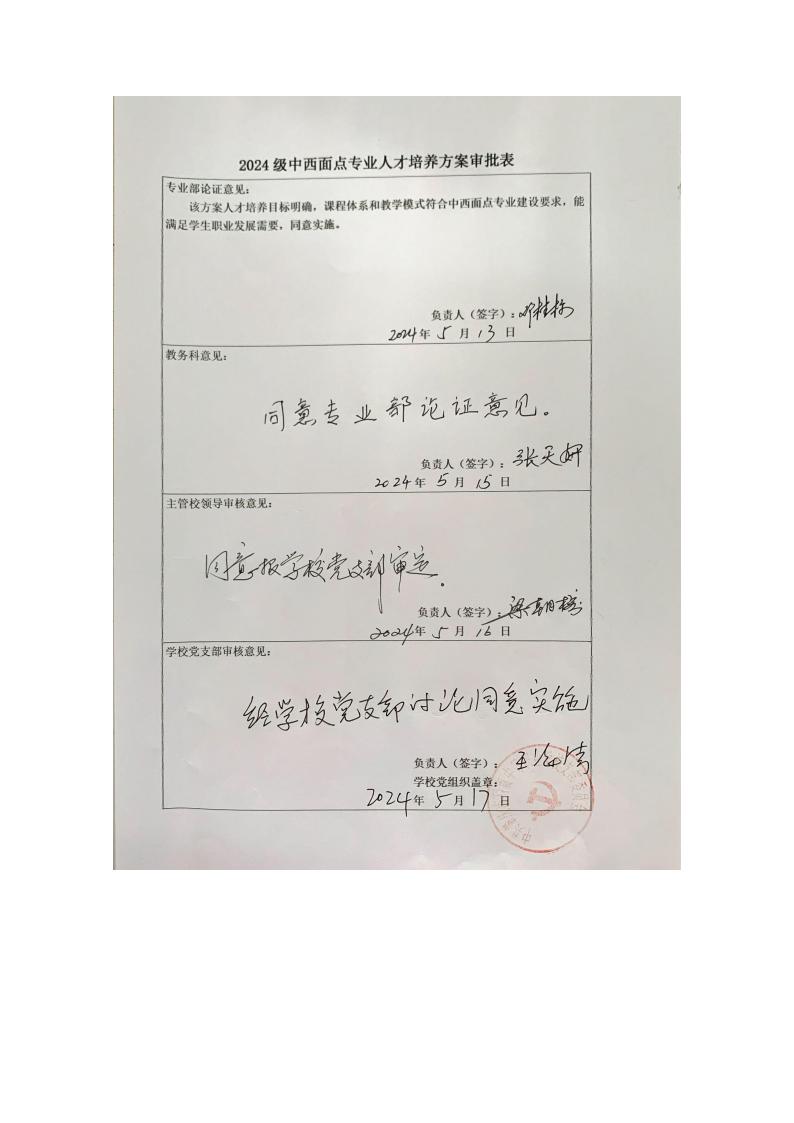 2024 级中西面点专业人才培养方案审批表
专业部论证意见：
该方案人才培养目标明确，课程体系和教学模式符合中西面点专业建设要求，能
满足学生职业发展需要，同意实施。
负责人（签字）：邓桂栋
2024年 5 月 13 日
教务科意见：
同意专业部论证意见。
负责人（签字）：张天妍
2024 年 5 月 15 日
主管校领导审核意见：
同意报学校党支部审定.
负责人（签字）：梁朝
2024年 5 月 16 日
学校党支部审核意见：
经学校党支部讨论同意实施
负责人（签字）：王
学校党组织盖章：
2024年 5 月 17 日